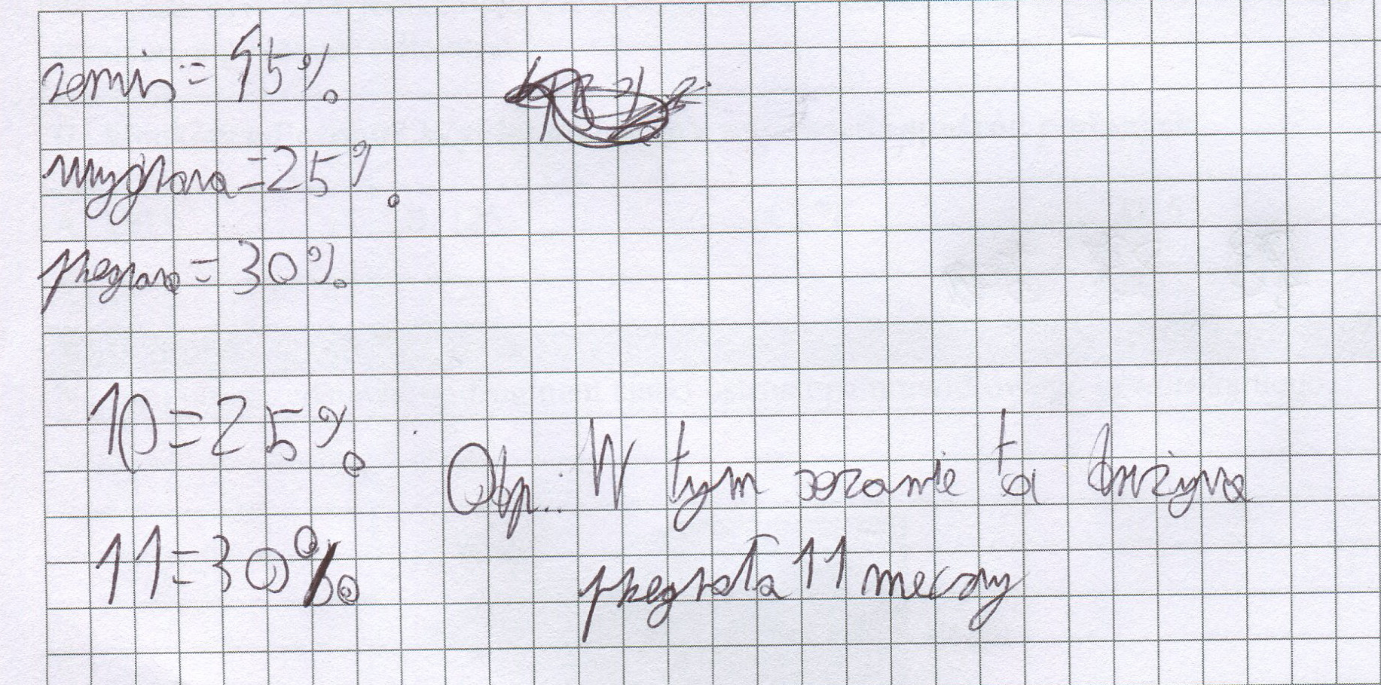 remis = 45%
wygrana = 25%
przegrana = 30%
10 = 25%
Odp.: W tym sezonie ta drużyna
11 = 30%
przegrała 11 meczy